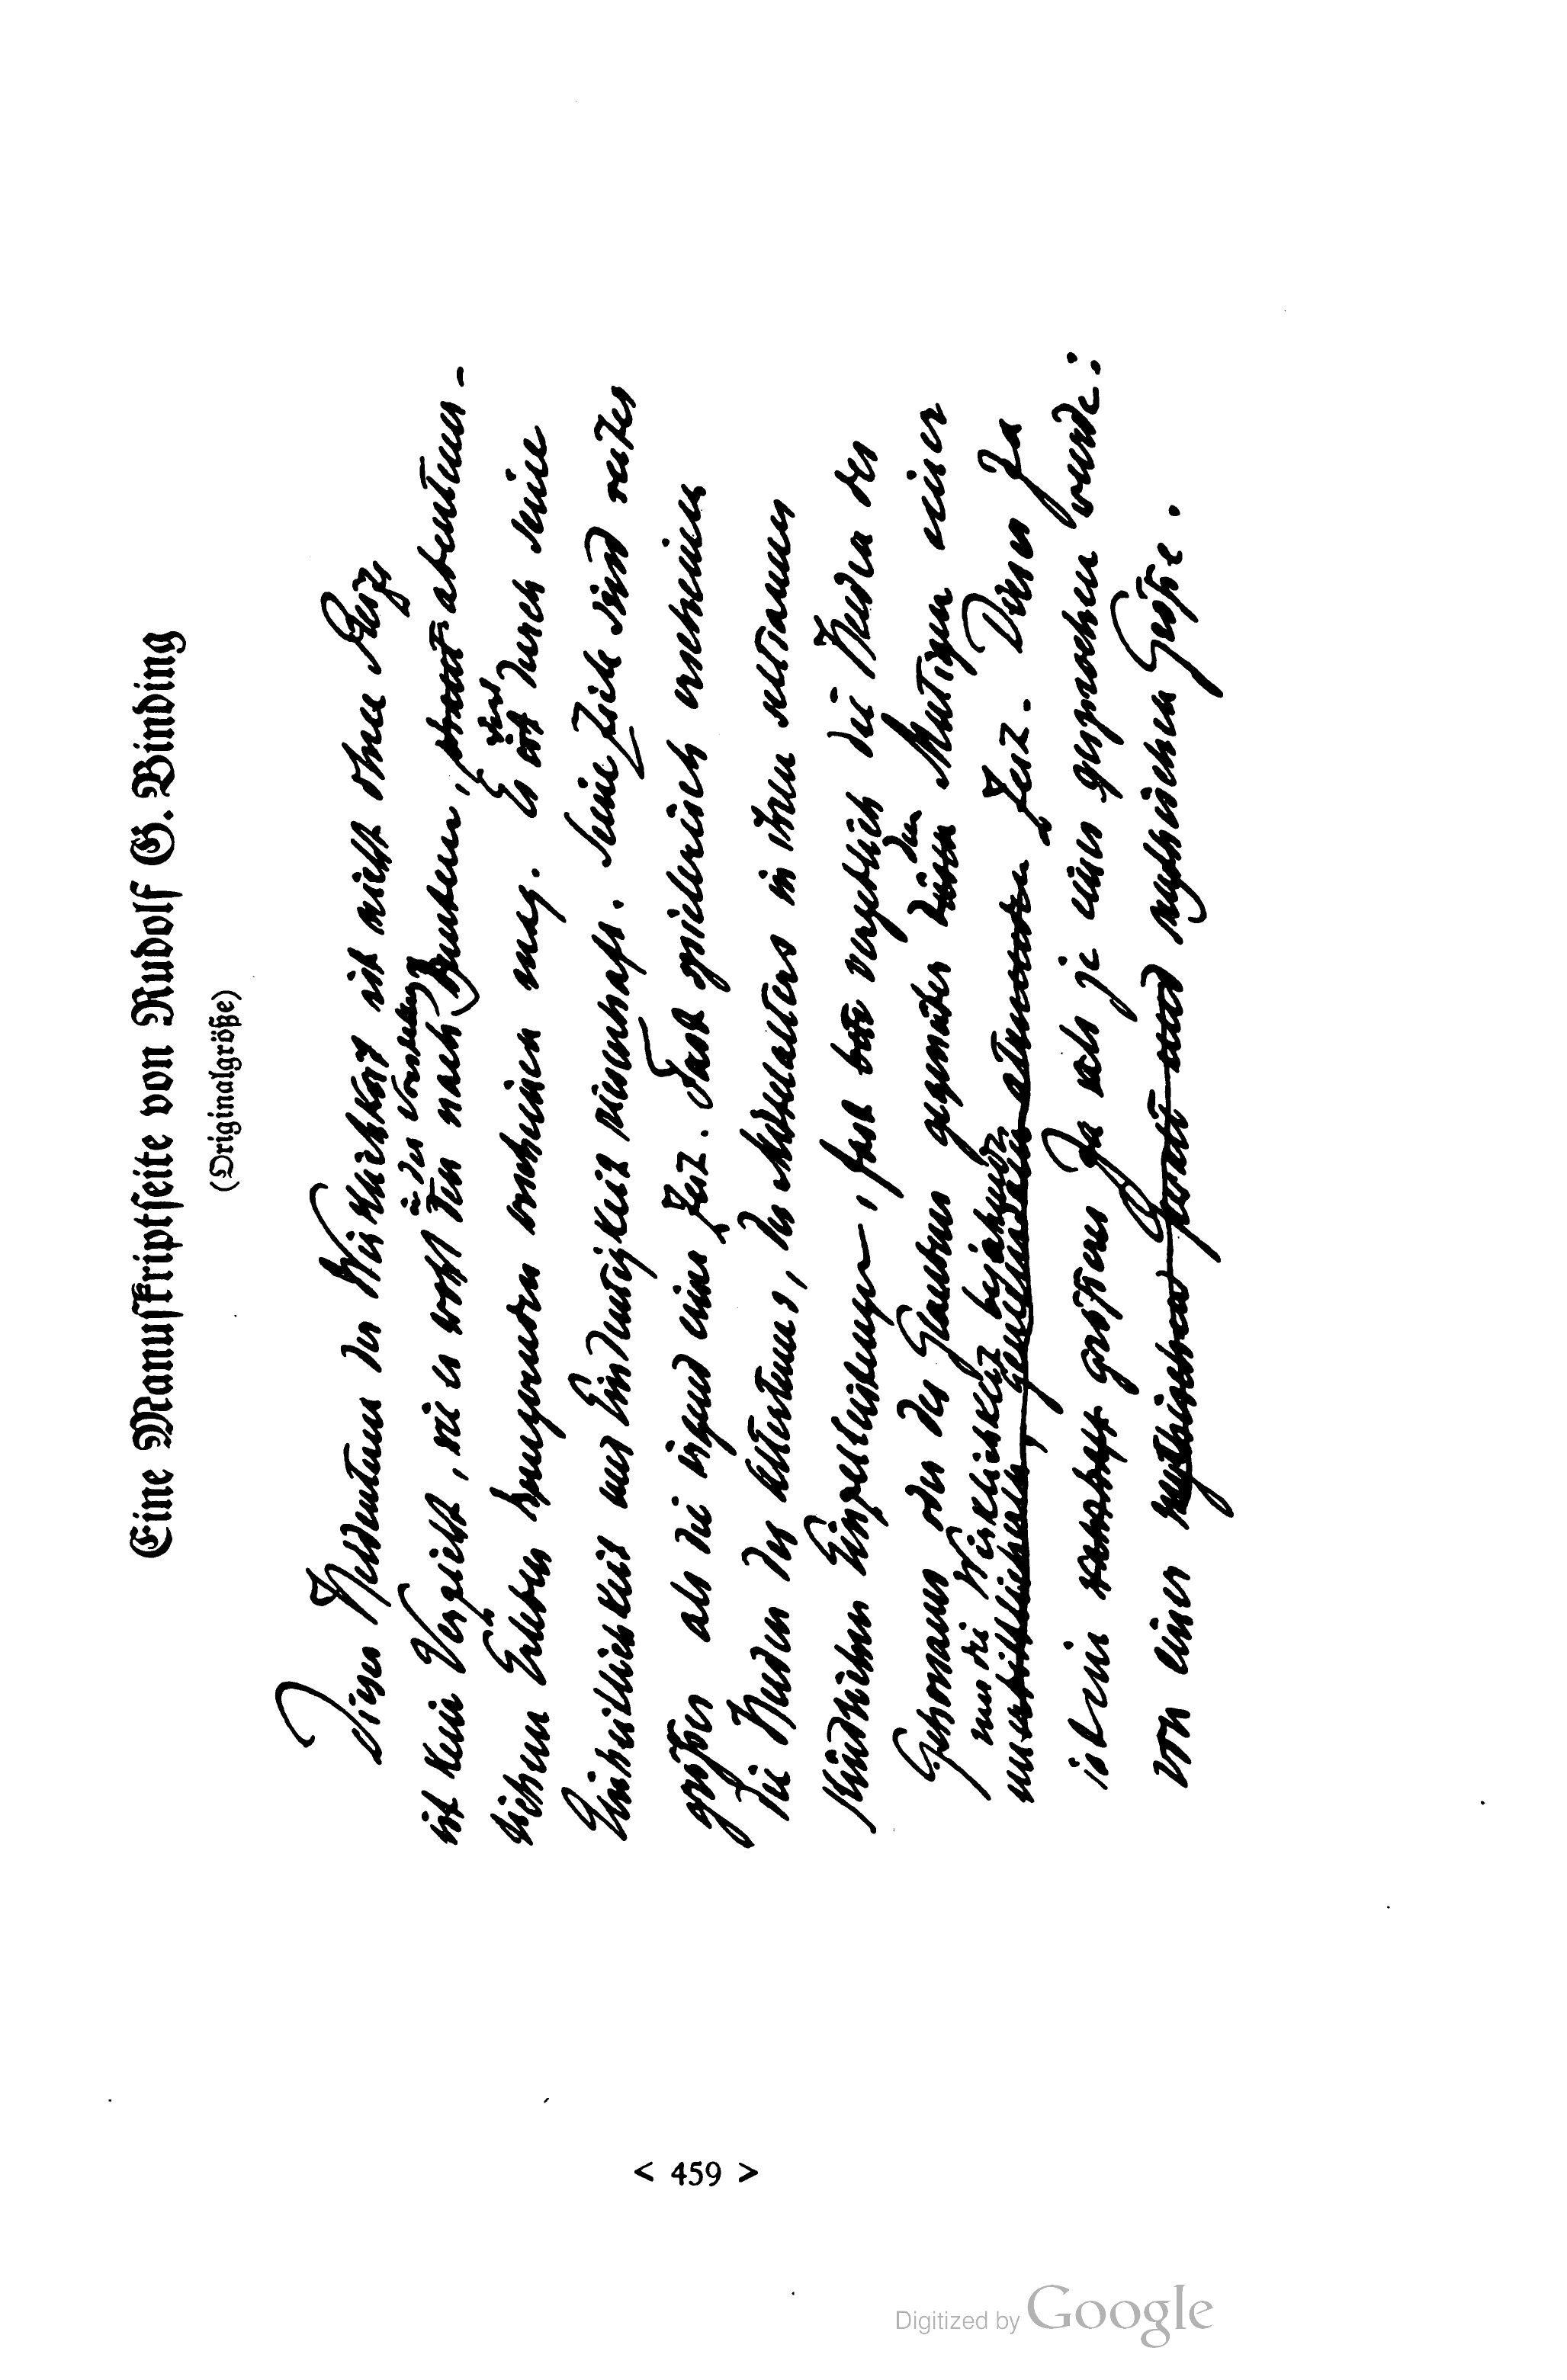 Eine Manuskriptseite von Rudolf G. Binding
(Originalgröße)
Dieses Heldentum der Wirklichkeit ist nicht ohne
ist kein Verzicht, wie es wohl den nach in der Vorstellung buntem, abenteuer-
lichem Erleben hungernden erscheinen mag. Es ist durch seine
Einheitlichkeit und Eindeutigkeit riesenhaft. Seine Ziele sind weiter
größer als die irgend einer Zeit. Fast spielerisch erscheinen
die Helden des Altertums, des Mittelalters in ihren seltsamen
Einzelleistungen, fast vergeblich die Helden der
oder des Glaubens gegenüber den Mutigen einer
nur die Wirklichkeit bejahenden
Zeit. Dieses Ja
ist ein größeres Ja als je eines gesprochen wurde:
von einer mythischen Größe.
< 459 >
Digitized by Google